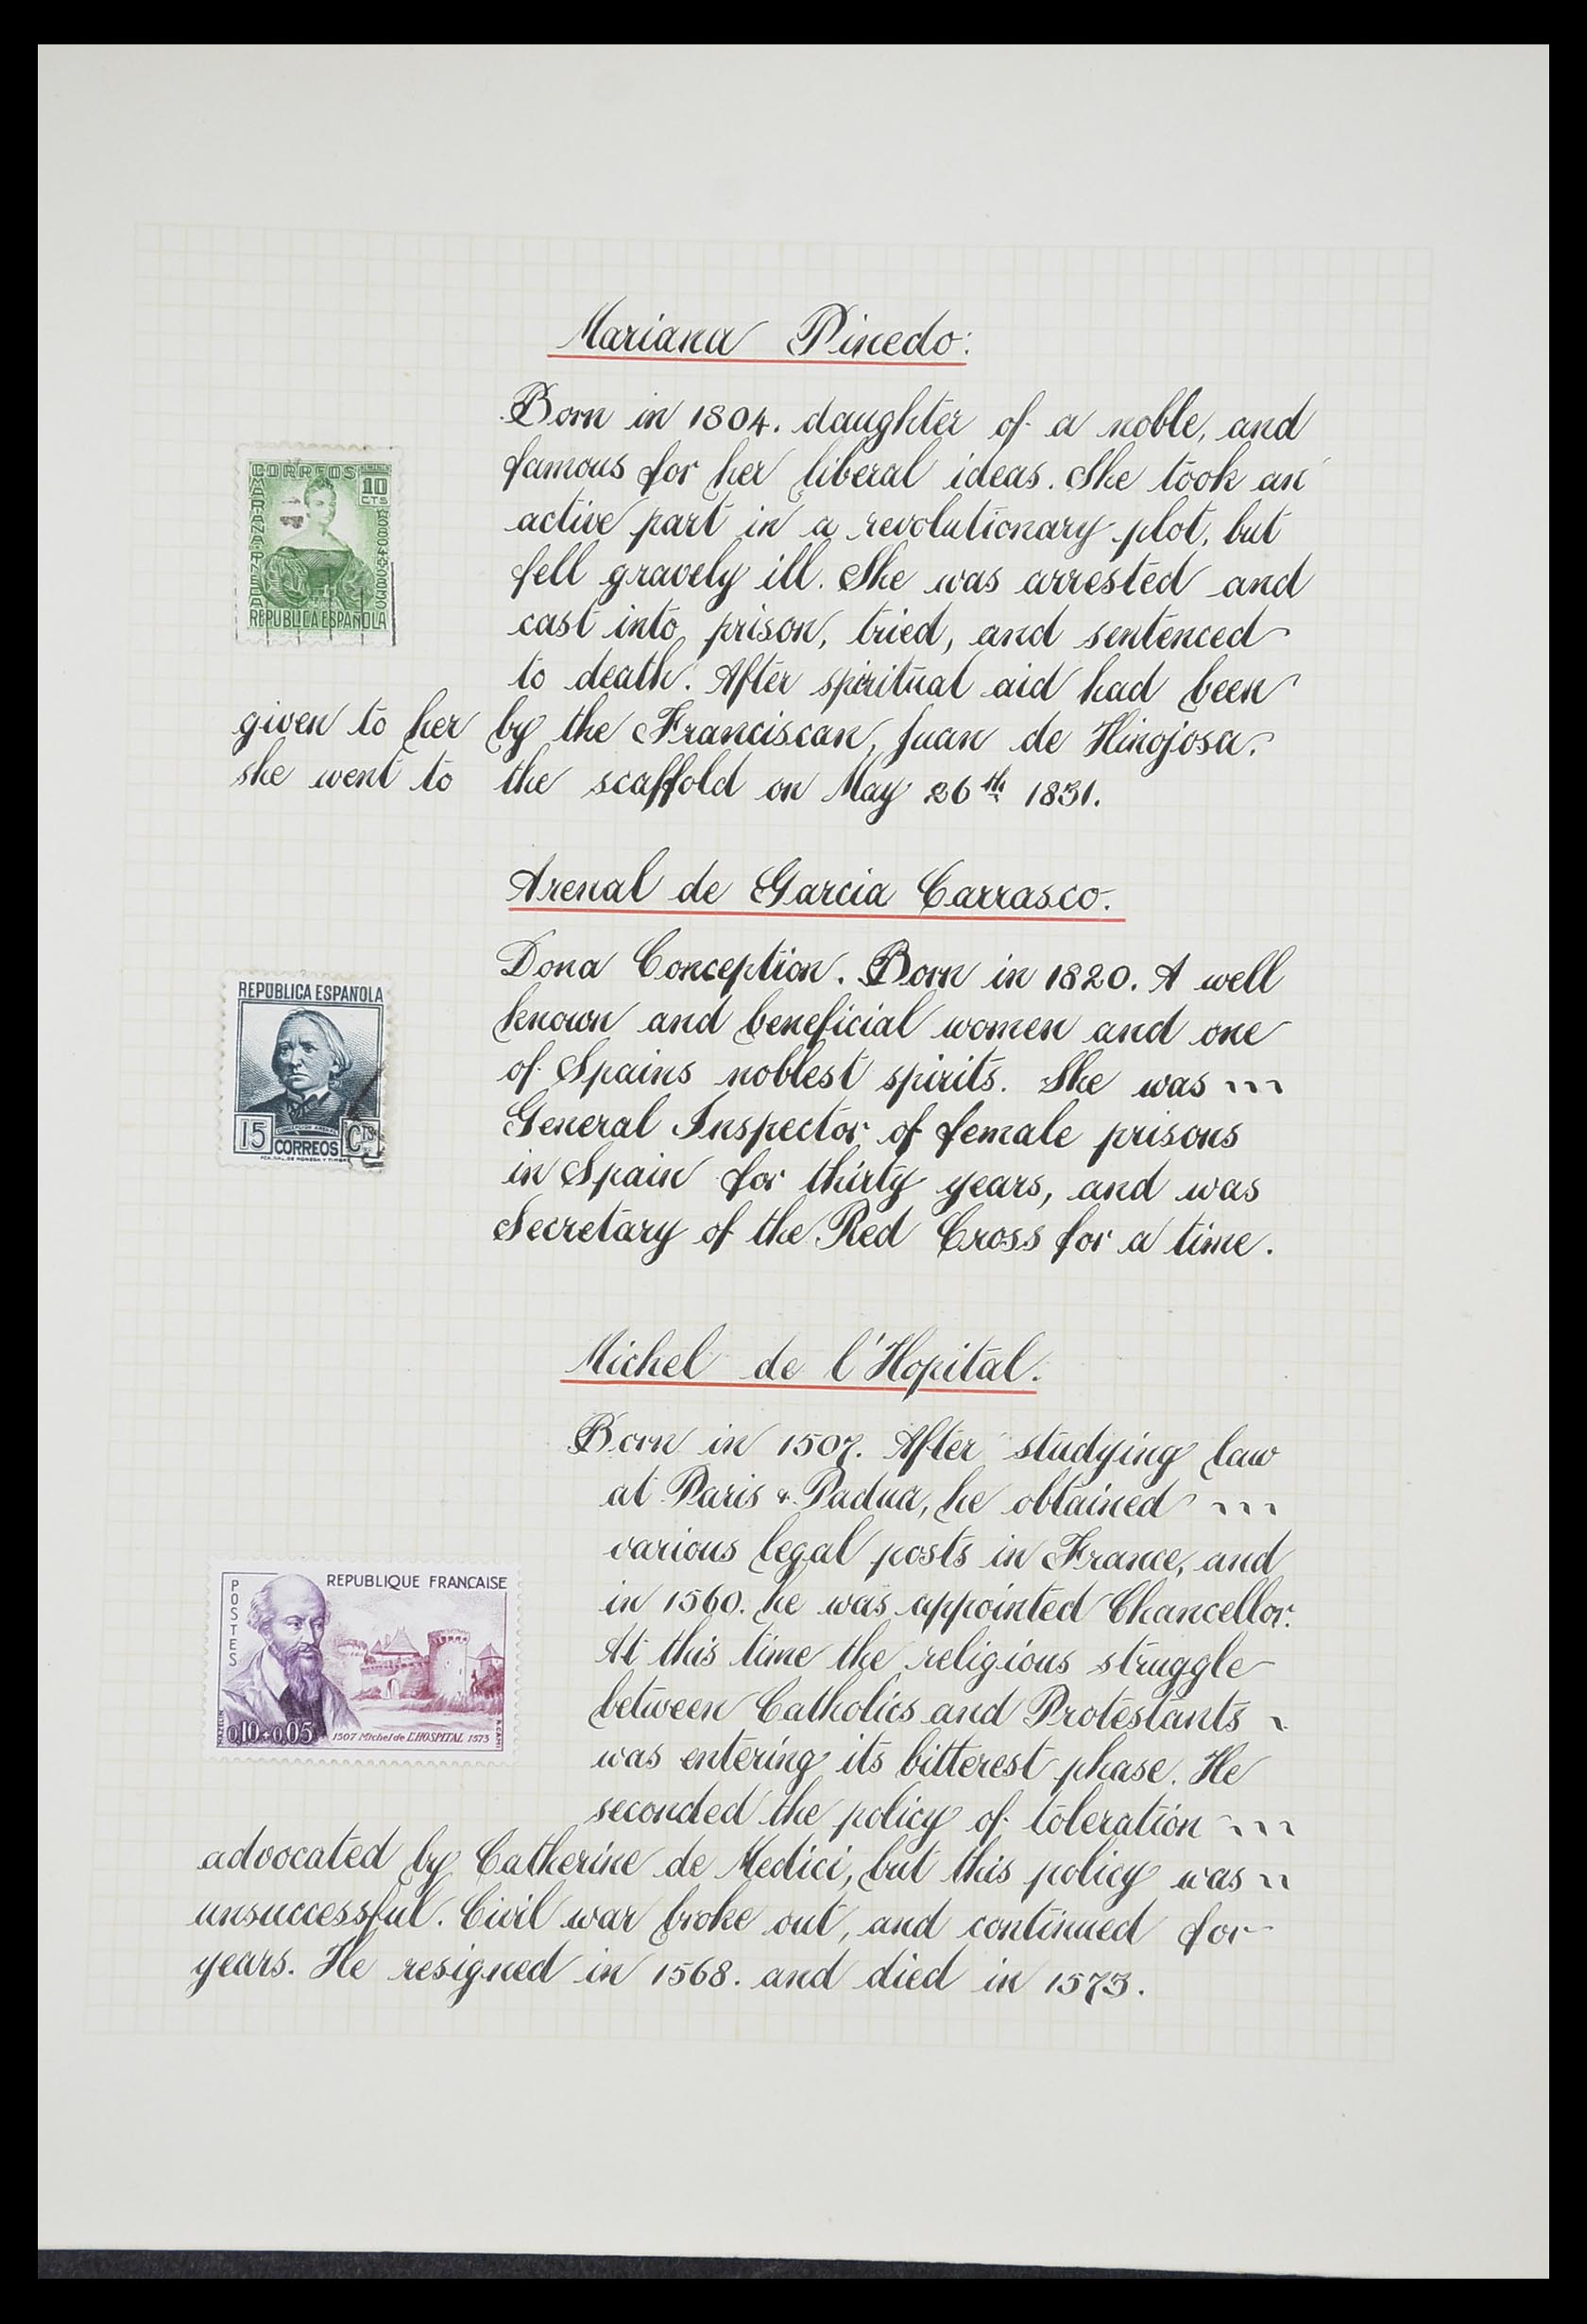 Mariana Pinedo:
Born in 1804. daughter of a noble, and
famous for her liberal ideas. She took an
active part in a revolutionary plot, but
fell gravely ill. She was arrested and
cast into prison, tried, and sentenced
to death. After spiritual aid had been
given to her by the Franciscan, Juan de Hinojosa.
she went to the scaffold on May 26th 1831.
CORREOS
10
CTS
MARIANA PINEDA
REPUBLICA ESPAÑOLA
Arenal de Garcia Carrasco.
Dona Conception. Born in 1820. A well
known and beneficial women and one
of Spains noblest spirits. She was
General Inspector of female prisons
in Spain for thirty years, and was
Secretary of the Red Cross for a time.
REPÚBLICA ESPAÑOLA
15 CORREOS CTS
Michel de l'Hopital.
Born in 1507. After studying law
at Paris & Padua, he obtained
various legal posts in France, and
in 1560. he was appointed Chancellor.
At this time the religious struggle
between Catholics and Protestants
was entering its bitterest phase. He
seconded the policy of toleration
advocated by Catherine de Medici, but this policy was
unsuccessful. Civil war broke out, and continued for
years. He resigned in 1568. and died in 1573.
POSTES
REPUBLIQUE FRANÇAISE
0,10+0,05
1507 Michel de L'HOSPITAL 1573